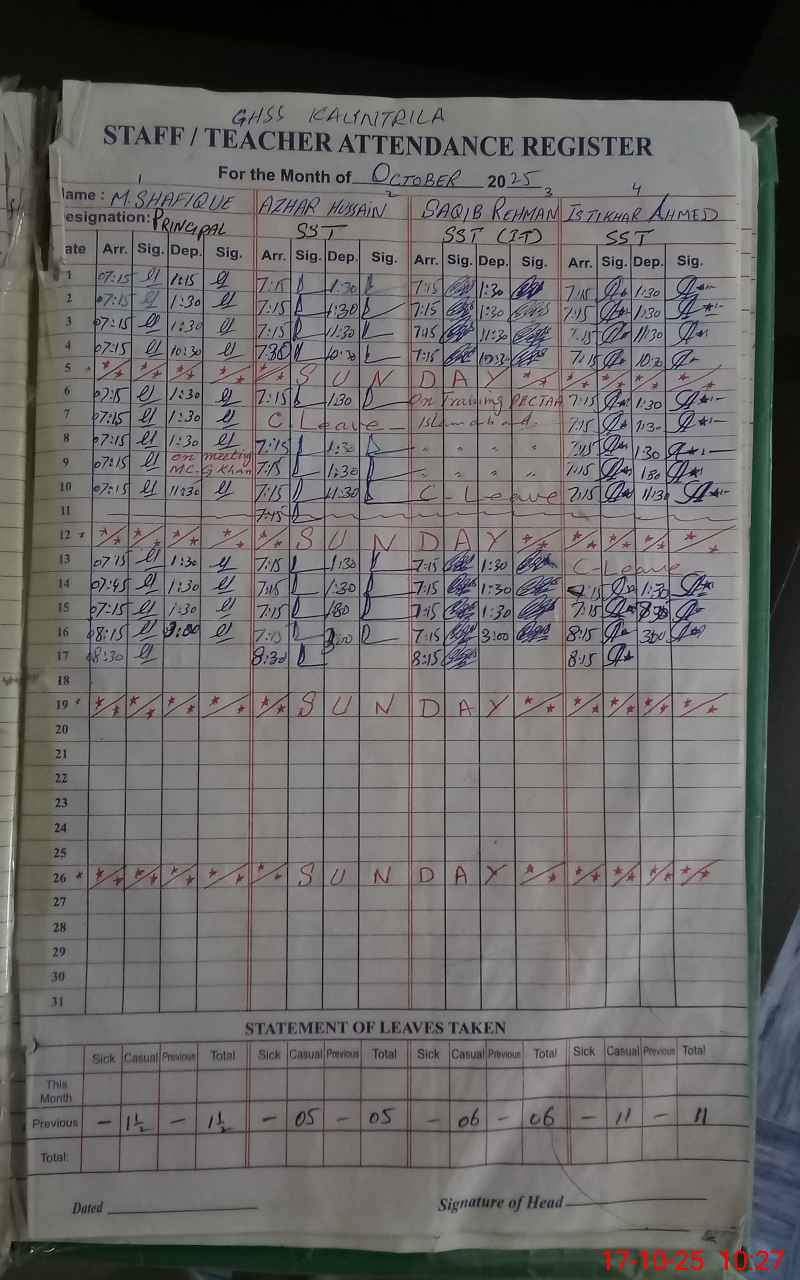 GHSS KALYNTRILA
STAFF / TEACHER ATTENDANCE REGISTER
For the Month of OCTOBER 2025
1 2 3 4
ame : M. SHAFIQUE AZHAR HUSSAIN SAQIB REHMAN ISTIKHAR AHMED
esignation: PRINCIPAL SST SST (IT) SST
ate Arr. Sig. Dep. Sig. Arr. Sig. Dep. Sig. Arr. Sig. Dep. Sig. Arr. Sig. Dep. Sig.
1 07:15 1:15 7:15 1:30 7:15 1:30 7:15 1:30
2 07:15 1:30 7:15 1:30 7:15 1:30 7:15 1:30
3 07:15 1:30 7:15 11:30 7:15 11:30 7:15 11:30
4 07:15 10:30 7:30 10:30 7:15 10:30 7:15
5 SUNDAY
6 07:15 1:30 7:15 1:30 On Training 7:15 1:30
7 07:15 1:30 C. Leave Islamabad 7:15 1:30
8 07:15 1:30 7:15 1:30 " " " 7:15 1:30
9 07:15 on meeting MC. G Khan 7:15 1:30 " " " 7:15
10 07:15 11:30 7:15 11:30 C - Leave 7:15 11:30
11 7:45
12 SUNDAY
13 07:15 1:30 7:15 1:30 7:15 1:30 C-Leave
14 07:45 1:30 7:15 1:30 7:15 1:30 7:15 1:30
15 07:15 1:30 7:15 7:15 1:30 7:15
16 08:15 3:00 7:15 7:15 3:00 8:15 300
17 8:30 8:30 8:15 8:15
18
19 SUNDAY
20
21
22
23
24
25
26 SUNDAY
27
28
29
30
31
STATEMENT OF LEAVES TAKEN
Sick Casual Previous Total Sick Casual Previous Total Sick Casual Previous Total Sick Casual Previous Total
This Month
Previous - 1½ - 1½ - 05 - 05 - 06 - 06 - 11 - 11
Total:
Dated Signature of Head
17-10-25 10:27